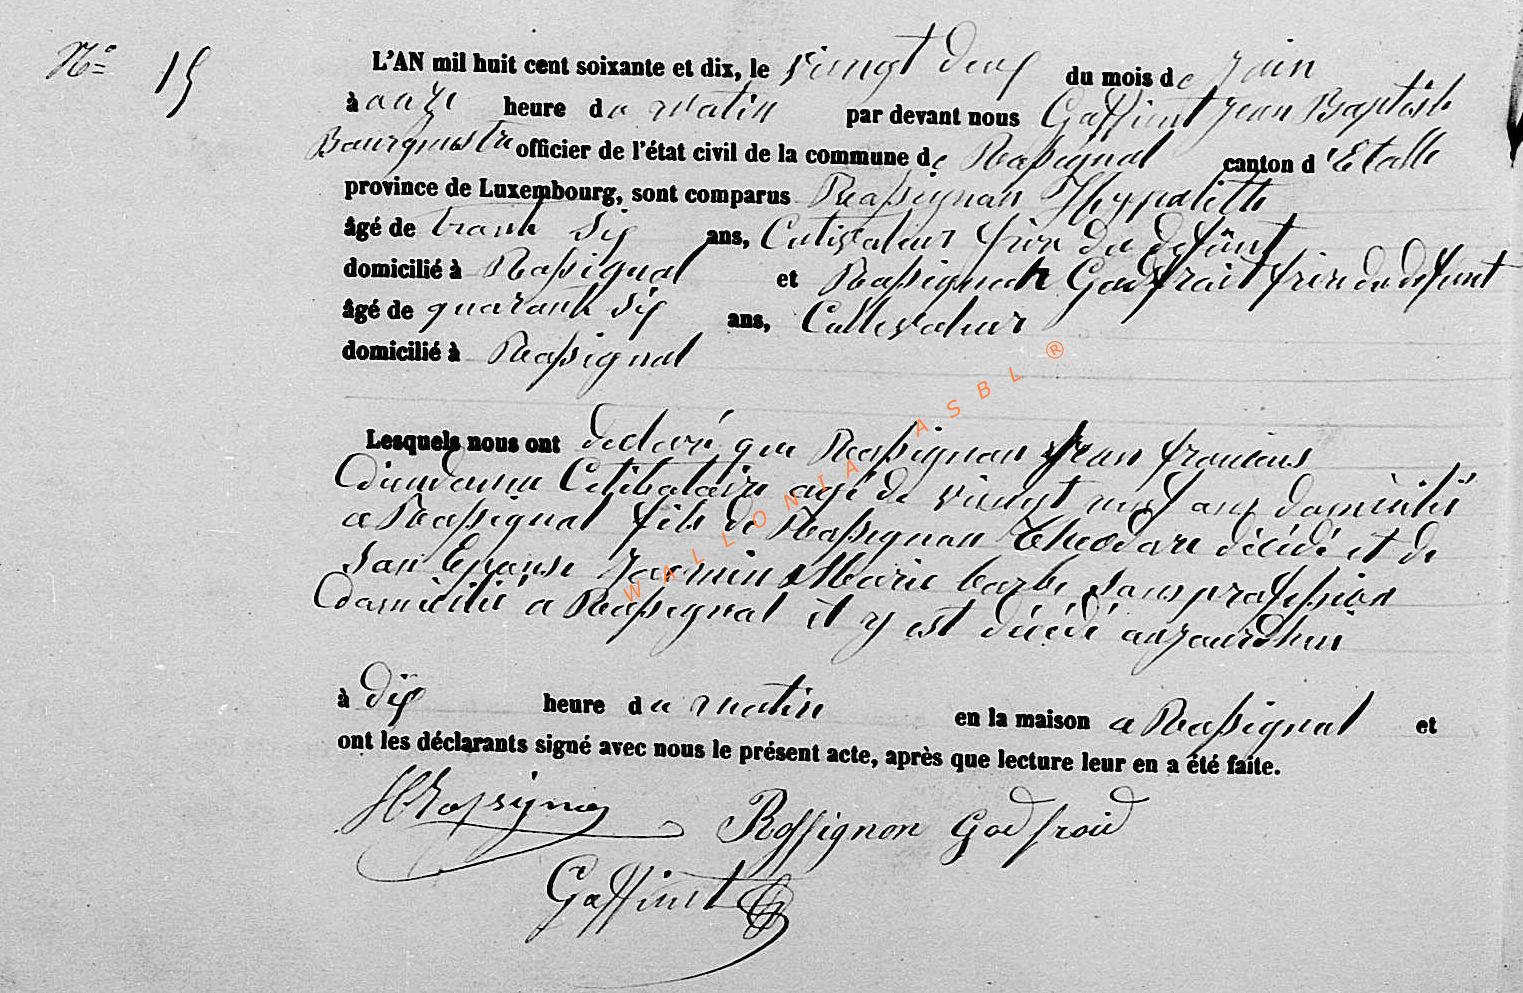 Nº 15
L'AN mil huit cent soixante et dix, le vingt deux du mois de Juin
à onze heure du matin par devant nous Gaffinet Jean Baptiste
Bourgmestre officier de l'état civil de la commune de Rossignol canton d'Etalle
province de Luxembourg, sont comparus Rossignon Hyppolitte
âgé de trente six ans, Cultivateur frère du défunt
domicilié à Rossignol et Rossignon Godfroit frère du defunt
âgé de quarante six ans, Cultivateur
domicilié à Rossignol
Lesquels nous ont déclaré que Rossignon Jean francois
Dieudonné Celibataire agé de vingt neuf ans domicilié
a Rossignol fils de Rossignon Théodore décédé et de
son Epouse Jacmin Marie barbe sans profession
domicilié a Rossignol il y est décédé aujourdhui
à dix heure du matin en la maison a Rossignol et
ont les déclarants signé avec nous le présent acte, après que lecture leur en a été faite.
HRossignon Rossignon Godfroid
Gaffinet
WALLONIA ASBL ®